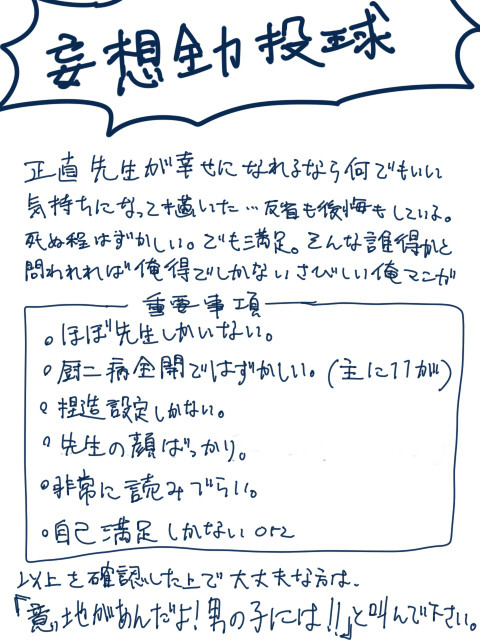 妄想全力投球
正直先生が幸せになれるなら何でもいい
気持ちになって描いた…反省も後悔もしている。
死ぬ程はずかしい。でも満足。そんな誰得かと
問われれば俺得でしかないさびしい俺マンガ
重要事項
・ほぼ先生しかいない。
・厨二病全開ではずかしい。(主に11が)
・捏造設定しかない。
・先生の顔ばっかり。
・非常に読みづらい。
・自己満足しかないorz
以上を確認した上で大丈夫な方は、
「意地があんだよ!男の子には!!」と叫んで下さい。